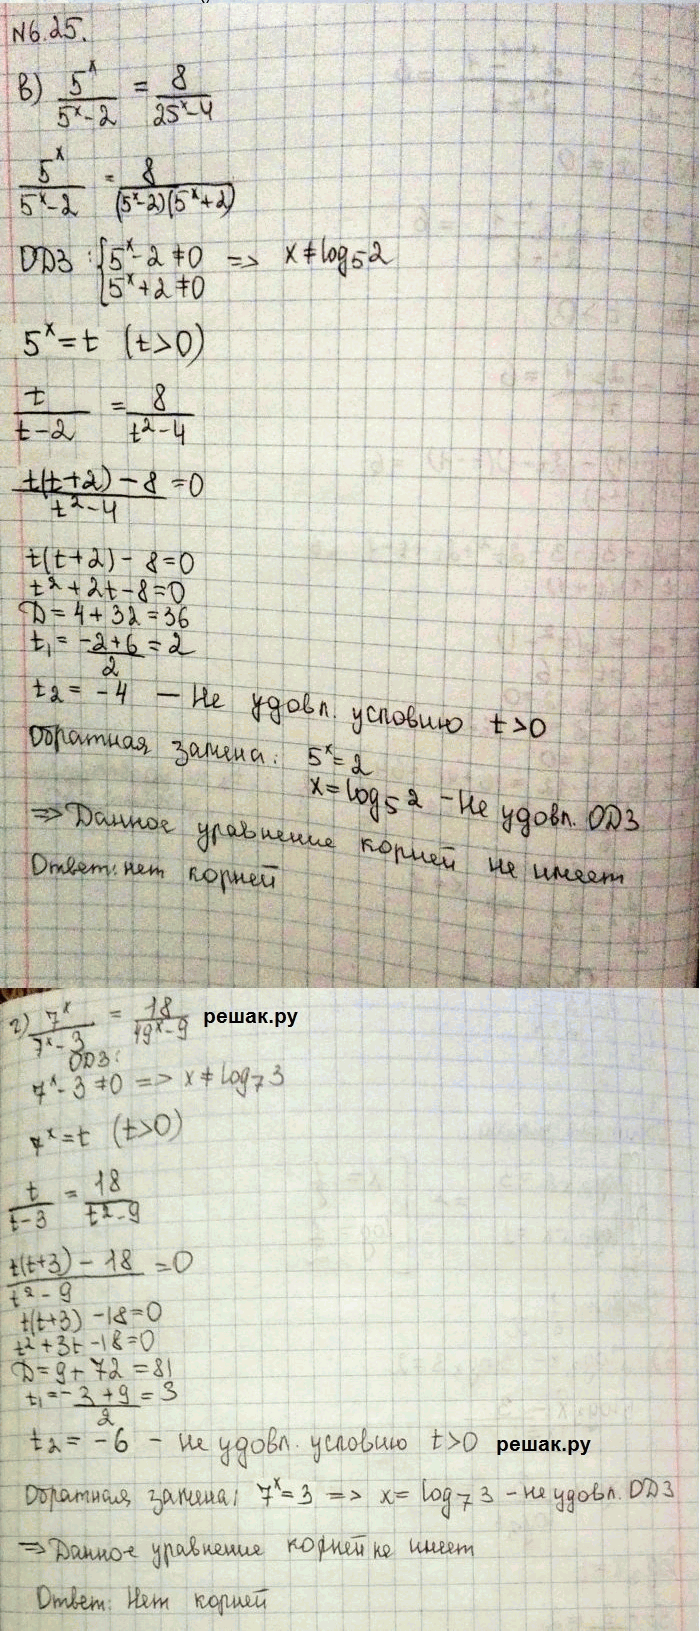 №6.25.
в) 5^x/(5^x-2) = 8/(25^x-4)
5^x/(5^x-2) = 8/((5^x-2)(5^x+2))
ОДЗ: {5^x-2≠0 => x≠log₅2
5^x+2≠0
5^x=t (t>0)
t/(t-2) = 8/(t²-4)
(t(t+2)-8)/(t²-4) = 0
t(t+2)-8=0
t²+2t-8=0
D=4+32=36
t₁=(-2+6)/2=2
t₂=-4 - Не удовл. условию t>0
Обратная замена: 5^x=2
x=log₅2 - Не удовл. ОДЗ
=> Данное уравнение корней не имеет
Ответ: нет корней
г) 7^x/(7^x-3) = 18/(49^x-9) решак.ру
ОДЗ:
7^x-3≠0 => x≠log₇3
7^x=t (t>0)
t/(t-3) = 18/(t²-9)
(t(t+3)-18)/(t²-9) = 0
t(t+3)-18=0
t²+3t-18=0
D=9+72=81
t₁=(-3+9)/2=3
t₂=-6 - не удовл. условию t>0 решак.ру
Обратная замена: 7^x=3 => x=log₇3 - не удовл. ОДЗ
=> Данное уравнение корней не имеет
Ответ: Нет корней